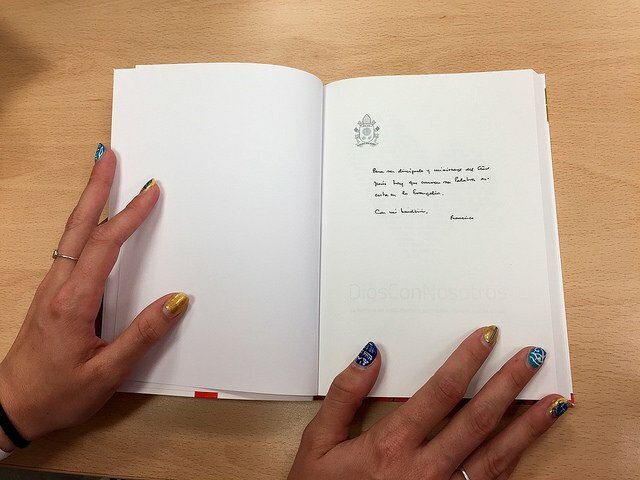 Para ser discípulo y misionero del Señor
Jesús hay que conocer su Palabra es-
crita en los Evangelios.
Con mi bendición,
Francisco
DiosConNosotros